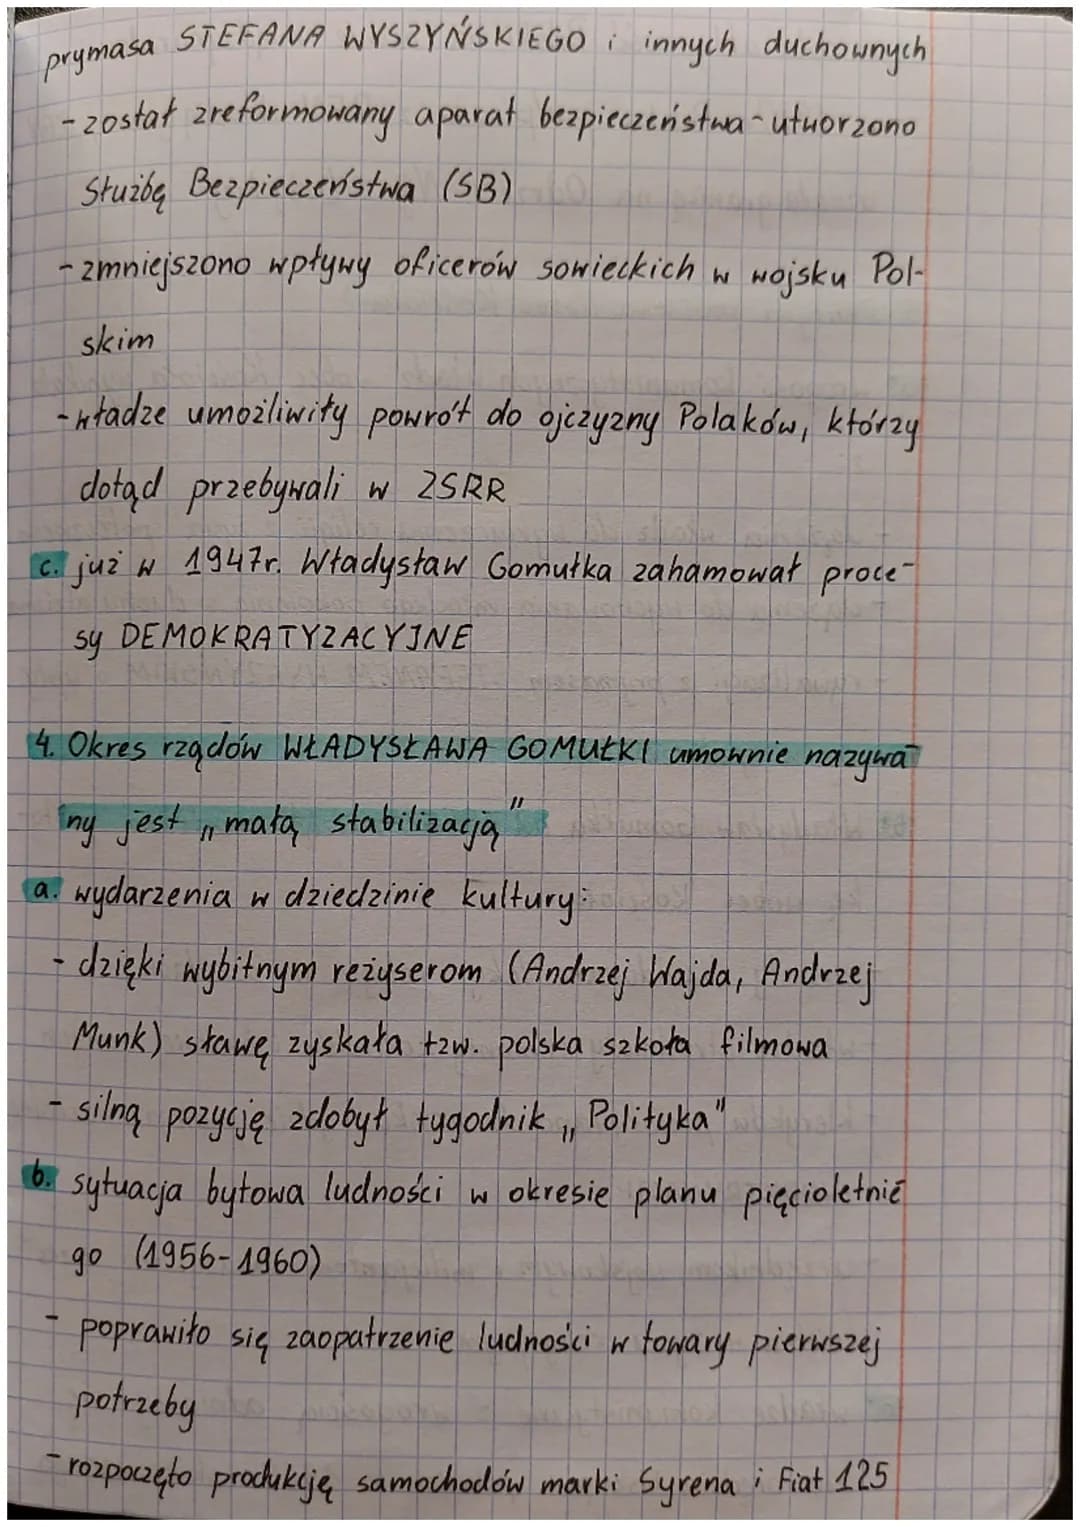 prymasa STEFANA WYSZYŃSKIEGO i innych duchownych
- został zreformowany aparat bezpieczeństwa - utworzono
Służbę Bezpieczeństwa (SB)
- zmniejszono wpływy oficerów sowieckich w wojsku Pol-
skim
- władze umożliwiły powrót do ojczyzny Polaków, którzy
dotąd przebywali w ZSRR
c. już w 1947r. Władysław Gomułka zahamował proce-
sy DEMOKRATYZACYJNE
4. Okres rządów WŁADYSŁAWA GOMUŁKI umownie nazywa-
ny jest „małą stabilizacją"
a. wydarzenia w dziedzinie kultury:
- dzięki wybitnym reżyserom (Andrzej Wajda, Andrzej
Munk) sławę zyskała tzw. polska szkoła filmowa
- silną pozycję zdobył tygodnik „Polityka"
b. sytuacja bytowa ludności w okresie planu pięcioletnie-
go (1956-1960)
- poprawiło się zaopatrzenie ludności w towary pierwszej
potrzeby
- rozpoczęto produkcję samochodów marki Syrena i Fiat 125